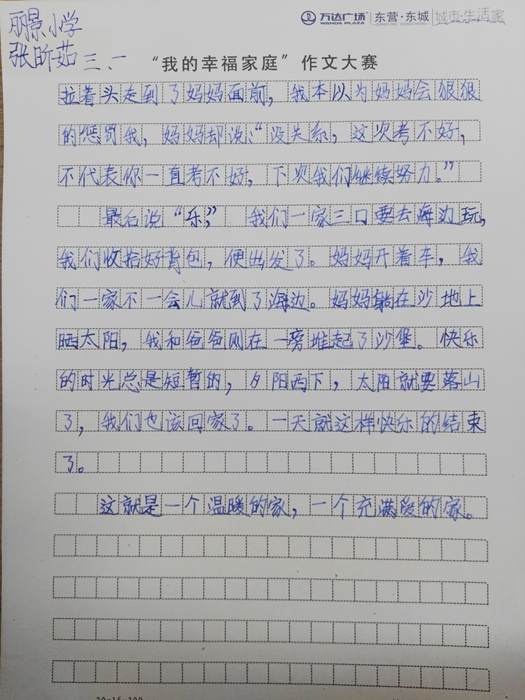 丽景小学
张昕茹 三.一
万达广场 WANDA PLAZA 东营·东城 城市·生活家
“我的幸福家庭”作文大赛
拉着头走到了妈妈面前，我本以为妈妈会狠狠
的惩罚我，妈妈却说：“没关系，这次考不好，
不代表你一直考不好，下次我们继续努力。”
最后说“乐”，我们一家三口要去海边玩，
我们收拾好背包，便出发了。妈妈开着车，我
们一家不一会儿就到了海边。妈妈躺在沙地上
晒太阳，我和爸爸则在一旁堆起了沙堡。快乐
的时光总是短暂的，夕阳西下，太阳就要落山
了，我们也该回家了。一天就这样快乐的结束
了。
这就是一个温暖的家，一个充满爱的家。